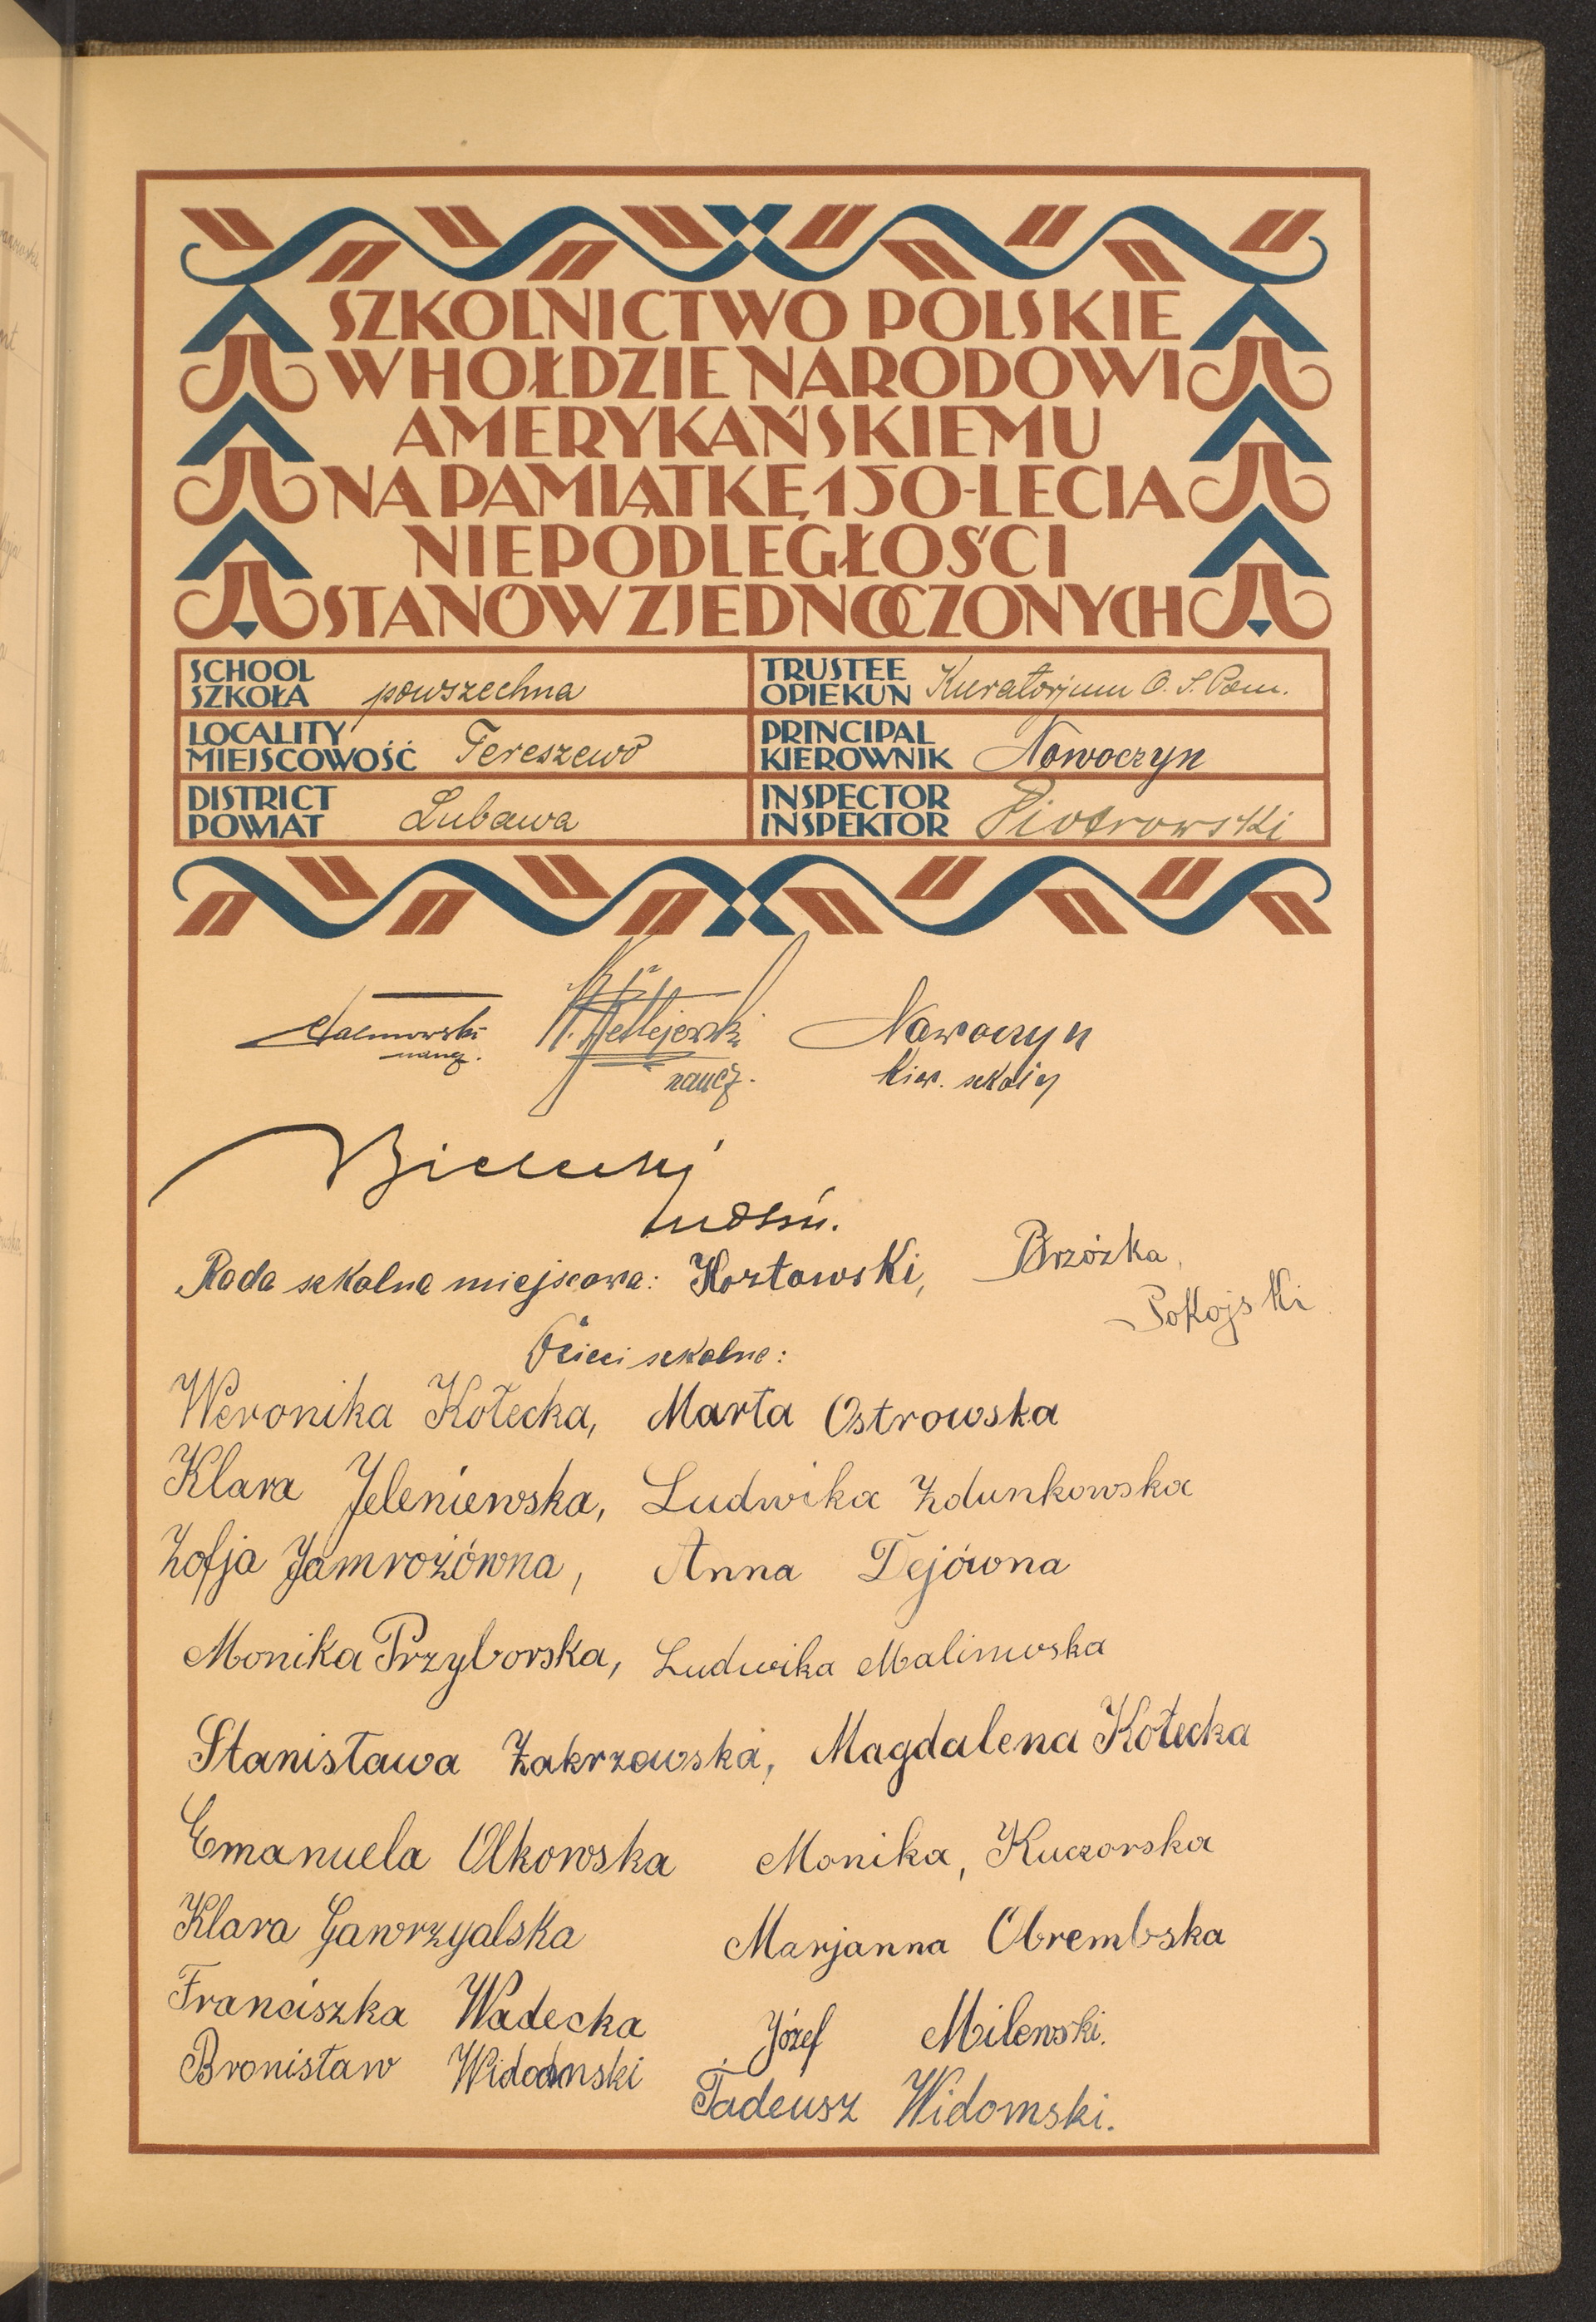 SZKOLNICTWO POLSKIE
W HOŁDZIE NARODOWI
AMERYKAŃSKIEMU
NA PAMIĄTKĘ 150-LECIA
NIEPODLEGŁOŚCI
STANÓW ZJEDNOCZONYCH
SCHOOL
SZKOŁA powszechna
TRUSTEE
OPIEKUN Kuratorjum O. S. Pom.
LOCALITY
MIEJSCOWOŚĆ Tereszewo
PRINCIPAL
KIEROWNIK Nowoczyn
DISTRICT
POWIAT Lubawa
INSPECTOR
INSPEKTOR Piotrowski
naucz.
naucz.
Nowoczyn
Kier. szkoły
Bielecki
Rada szkolna miejscowa: Kozłowski, Brzózka,
Pokojski
Dzieci szkolne:
Weronika Kołecka, Marta Ostrowska
Klara Jeleniewska, Ludwika Zdunkowska
Zofja Jamrożówna, Anna Dejówna
Monika Przyborska, Ludwika Malinowska
Stanisława Zakrzewska, Magdalena Kołecka
Emanuela Olkowska Monika, Kuczorska
Klara Gawrzyalska Marjanna Obrembska
Franciszka Wadecka Józef Milewski.
Bronisław Widomski Tadeusz Widomski.